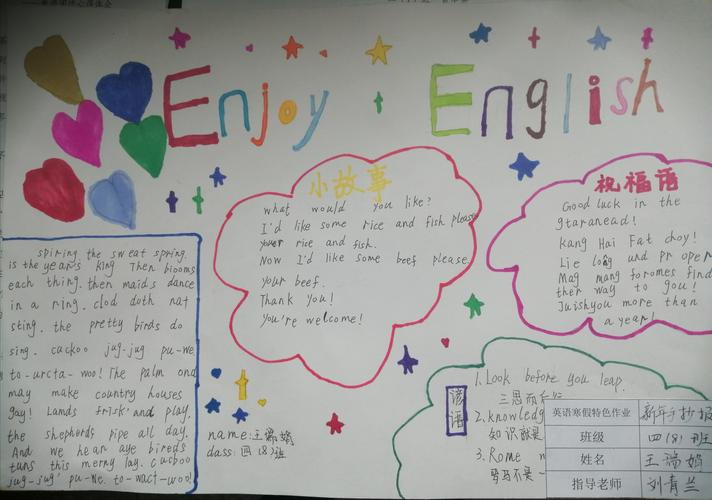 Enjoy English
spiring. the sweat spring.
is the year's King Then blooms
each thing. then maids dance
in a ring. clod doth nat
sting. the pretty birds do
sing. cuckoo jug-jug pu-we
to-urcta-woo! The palm and
may make country houses
gay! Lands frisk and play.
the shephords pipe all day.
And we hear aye bireds
tuns this merny lay. cucboo
jug-jug' pu-Ne. to-wact-woo!
小故事
what would you like?
I'd like some rice and fish please
your rice and fish.
Now I'd like some beef please.
your beef.
Thank you!
You're welcome!
祝福语
Good luck in the
gtaranead!
Kang Hai Fat choy!
Lie long und pr oper
Mag mang foromes find
ther way to you!
Juishyou more than
a year!
name:王瑞娟
dass:四(8)班
谚语
1. Look before you leap.
三思而
2. knowledg
知识就是
3. Rome
罗马不是一
英语寒假特色作业 新年手抄报
班级 四(8)班
姓名 王瑞娟
指导老师 刘青兰